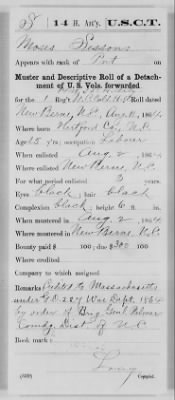 S | 14 H. Art'y. | U.S.C.T.
Moses Sessoms
Appears with rank of Pvt on
Muster and Descriptive Roll of a Detach-
ment of U. S. Vols. forwarded
for the 1 Reg't N.C. Roll dated
New Berne, N.C., Aug. 1864
Where born Hertford Co., N.C.
Age 5 y'rs; occupation Labour
When enlisted Aug 2, 1864
Where enlisted New Berne, N.C.
For what period enlisted 3 years.
Eyes black; hair black
Complexion black; height 6 ft. in.
When mustered in Aug 2, 1864
Where mustered in New Berne, N.C.
Bounty paid $ 100; due $300 100
Where credited
Company to which assigned
Remarks: Credited to Massachusetts
under G.O. 227 War Dept. 1864
by order of Brig. Genl Palmer
Comdg Dist. of N.C.
Book mark:
Copyist.